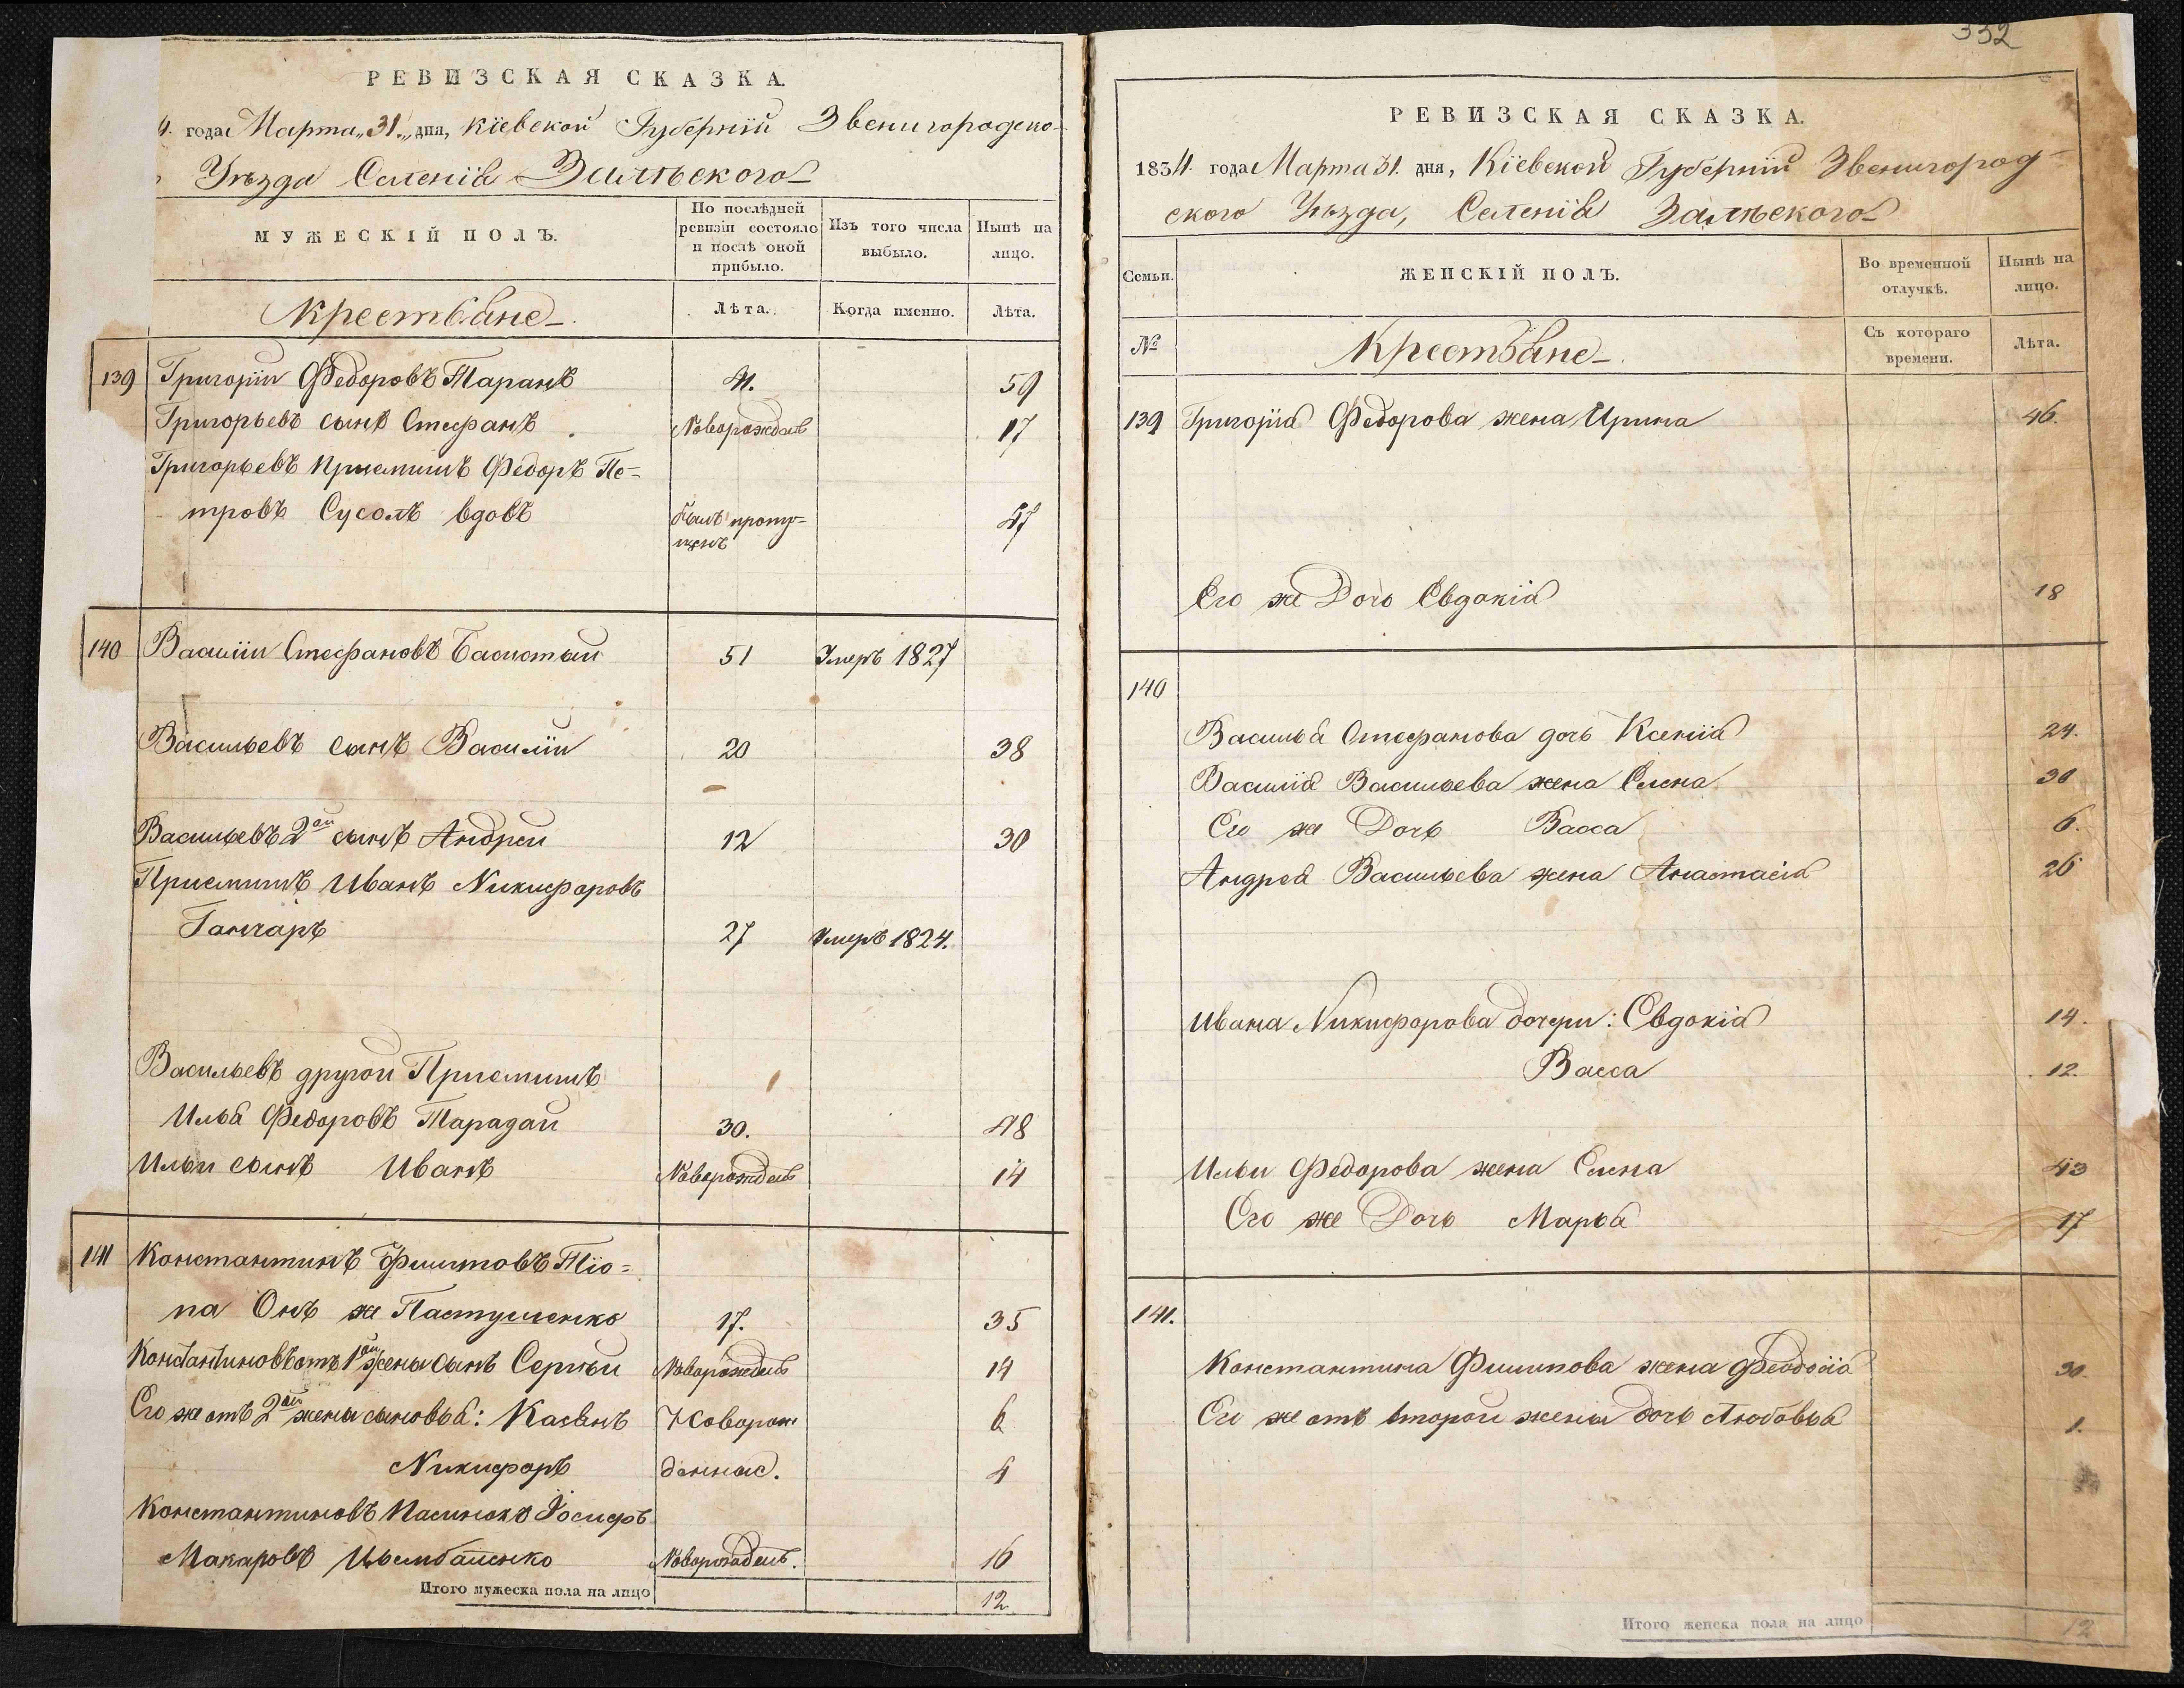 РЕВИЗСКАЯ СКАЗКА.
4. года Марта „31.„ дня, Кіевской Губерніи Звенигородско-
Уѣзда Селенія Залѣского
МУЖЕСКІЙ ПОЛЪ.
По послѣдней ревизіи состояло и послѣ оной прибыло.
Изъ того числа выбыло.
Нынѣ на лицо.
Крестьяне
Лѣта.
Когда именно.
Лѣта.
139 Григорій Федоровъ Таранъ 41. 59
Григорьевъ сынъ Стефанъ Новорожден 17
Григорьевъ приемышъ Федоръ Пе-
тровъ Сусолъ вдовъ Былъ пропу- 47
щенъ
140 Василій Стефановъ Басистый 51 Умеръ 1827
Васильевъ сынъ Василій 20 38
Васильевъ 2ой сынъ Андрей 12 30
Приемышъ Иванъ Никифоровъ
Ганчаръ 27 Умеръ 1824.
Васильевъ другой Приемышъ
Илья Федоровъ Тарадай 30. 48
Ильи сынъ Иванъ Новорожден 14
141 Константинъ Филиповъ Тіо=
па Онъ же Пастушенко 17. 35
Константиновъ отъ 1ой жены сынъ Сергѣй Новорожден 14
Его же отъ 2ой жены сыновья: Касьянъ Новорож 6
Никифоръ денные. 4
Константиновъ Пасинокъ Іосифъ
Макаровъ Цымбаленко Новорожден. 16
Итого мужеска пола на лицо 12
332
РЕВИЗСКАЯ СКАЗКА.
1834. года Марта 31. дня, Кіевской Губерніи Звенигород-
ского Уѣзда, Селенія Залѣского
Семьи.
ЖЕНСКІЙ ПОЛЪ.
Во временной отлучкѣ.
Нынѣ на лицо.
№
Крестьяне
Съ котораго времени.
Лѣта.
139 Григорія Федорова жена Ирина 46.
Его же Дочь Евдокія 18
140
Василья Стефанова дочь Ксенія 24.
Василія Васильева жена Елена 30
Его же Дочь Васса 6.
Андрея Васильева жена Анастасія 26
Ивана Никифорова дочери: Евдокія 14.
Васса 12.
Ильи Федорова жена Елена 43
Его же Дочь Марья 17
141.
Константина Филипова жена Феодосія 30.
Его же отъ второй жены дочь Любовья 1.
Итого женска пола на лицо 12